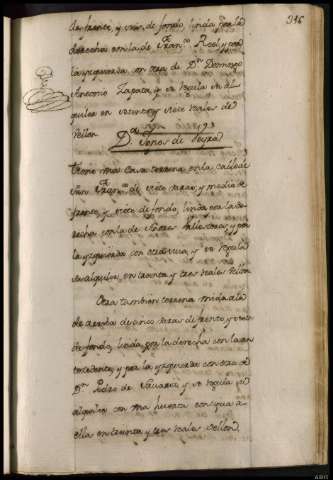 316
de frente, y vte. de fondo, linda por la
derecha con la de Fran.co Rial, y por
la yzquierda con otra de Dn. Domingo
Antonio Zapata, y se regula su al
quiler en veinte y siete reales de
vellon
D. de Seyra
tiene una Casa terrena en la Calle de
Sn. Fran.co de siete varas y media de
frente, y siete de fondo, linda por la de
recha con la de Andres Ballesteros, y por
la yzquierda con y se regula
su alquiler, en treinta y tres reales vellon.
Otra tambien terrena mas
de arriba de cinco varas de frente, y siete
de fondo, linda por la derecha con la an
tecedente, y por la yzquierda con otra de
Dn. Pedro de y se regula su
alquiler con una huerta contigua a
ella en treinta y tres reales vellon